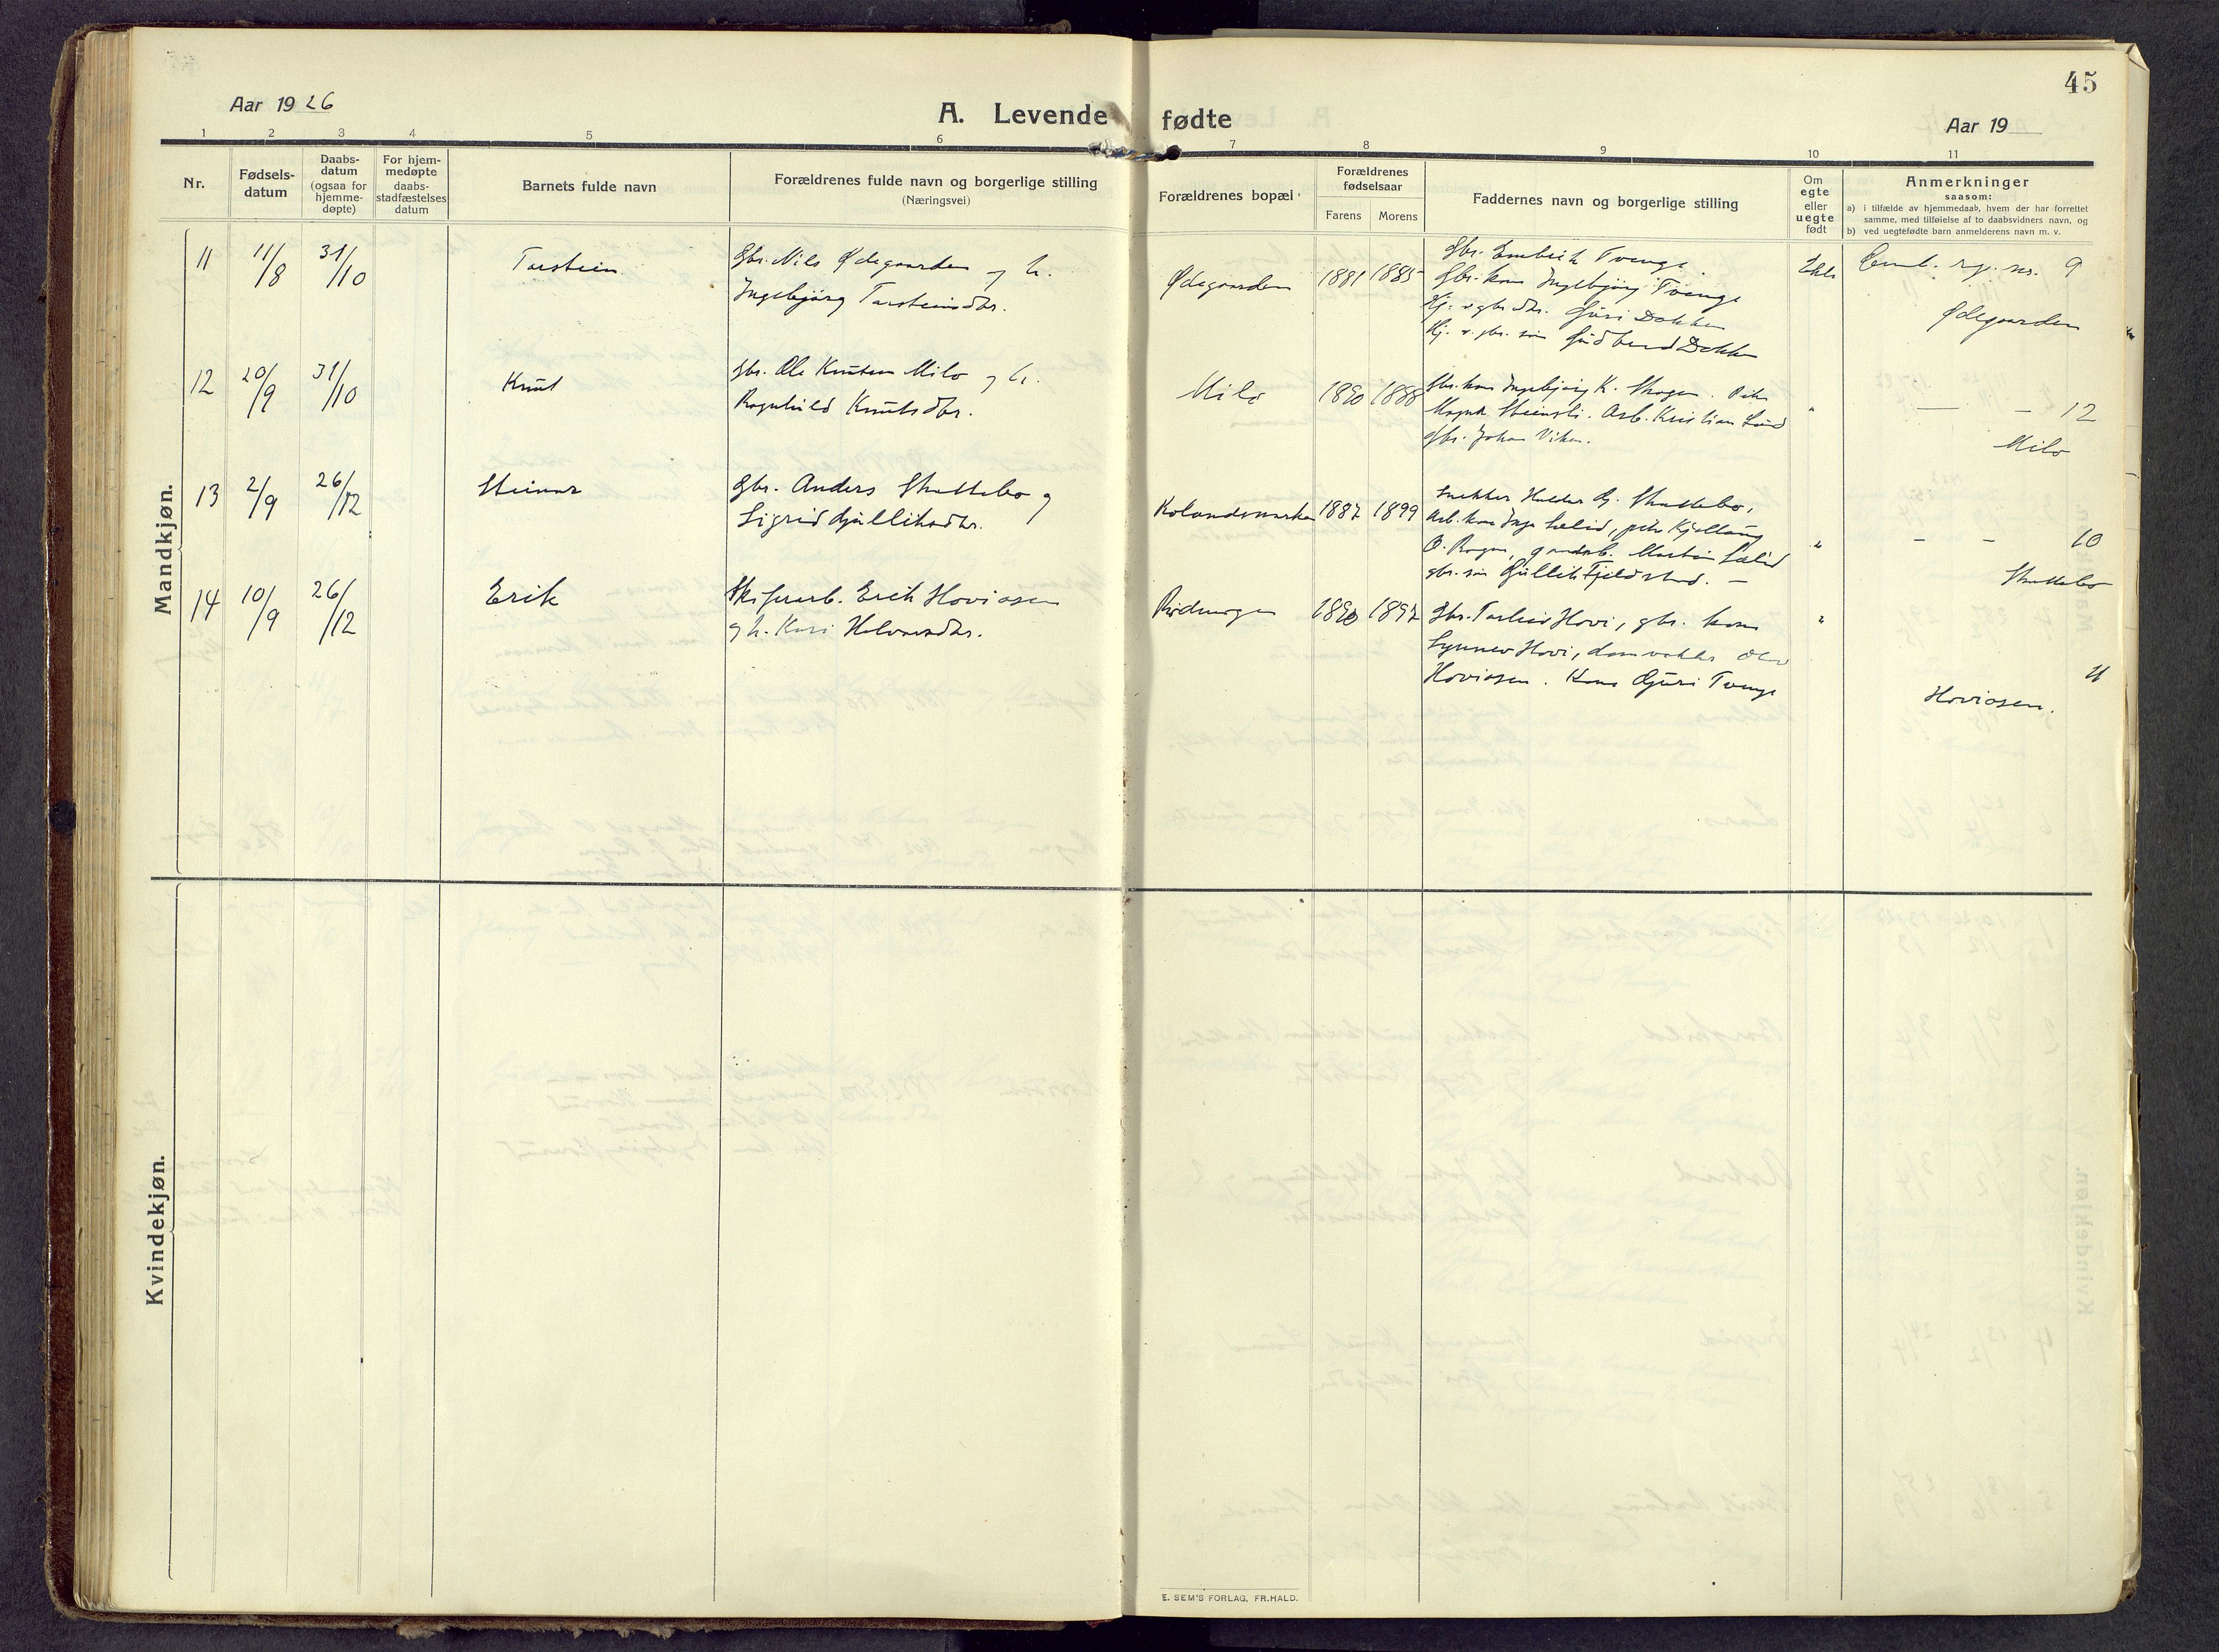 45
Aar 1926
A. Levende fødte
Aar 19
1 2 3 4 5 6 7 8 9 10 11
Nr.
Fødsels-
datum
Daabs-
datum
(ogsaa for
hjemme-
døpte)
For hjem-
medøpte
daabs-
stadfæstelses
datum
Barnets fulde navn
Forældrenes fulde navn og borgerlige stilling
(Næringsvei)
Forældrenes bopæl
Forældrenes
fødselsaar
Farens Morens
Faddernes navn og borgerlige stilling
Om
egte
eller
uegte
født
Anmerkninger
saasom:
a) i tilfælde av hjemmedaab, hvem der har forrettet
samme, med tilføielse af to daabsvidners navn, og
b) ved uegtefødte barn anmelderens navn m. v.
Mandkjøn.
11 11/8 31/10 Torstein
Gbr. Nils Ødegaarden og h.
Ingebjørg Torsteinsdtr.
Ødegaarden 1881 1885
Gbr. Embrik Tvenge.
Gbr. kone Ingebjørg Tvenge
Hj. v. gbr. dtr. Guri Dokken
Hj. v. gbr. søn Gudbrand Dokken
Ekte
9
Ødegaarden
12 20/9 31/10 Knut
Gbr. Ole Knutsen Milo og h.
Ragnhild Knutsdtr.
Milo 1890 1888
Gbr. kone Ingebjørg K. Skogen. Pike
Arb. Kristian Lund
Gbr. Johan Viken.
"
— – 12
Milo
13 2/9 26/12 Steinar
Gbr. Anders Skattebo og
Sigrid Gulliksdtr.
1887 1899
Snekker Haldor G. Skattebo,
Arb. kone Inga Lælid, pike Kjellaug
O. Ragn, gaardarb. Martin Lælid
gbr. søn Gullik Fjeldstad. —
"
– – 10
Skattebo
14 10/9 26/12 Erik
Skiferarb. Erik Hoviosen
og h. Kari Halvorsdtr.
Rødningen 1890 1897
Gbr. Torleiv Hovi, gbr. kone
Synnev Hovi, Olav
Hoviosen. Kone Guri Tvenge
"
11
Hoviosen.
Kvindekjøn.
E. SEM'S FORLAG, FR.HALD.